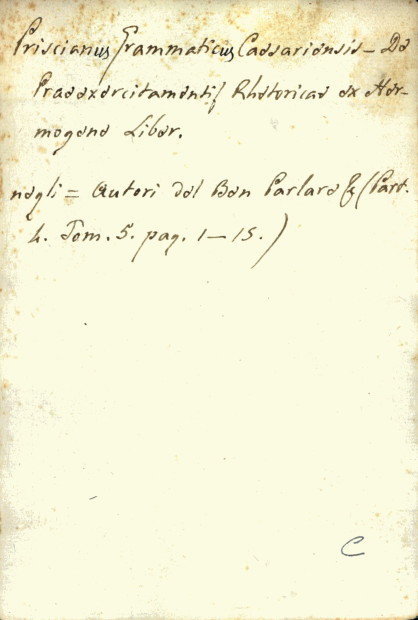 Priscianus Grammaticus Caesariensis – De
Praeexercitamentis Rhetoricae ex Her-
mogene Liber.
negli = Autori del Ben Parlare & (Part.
4. Tom. 5. pag. 1 – 15.)
C